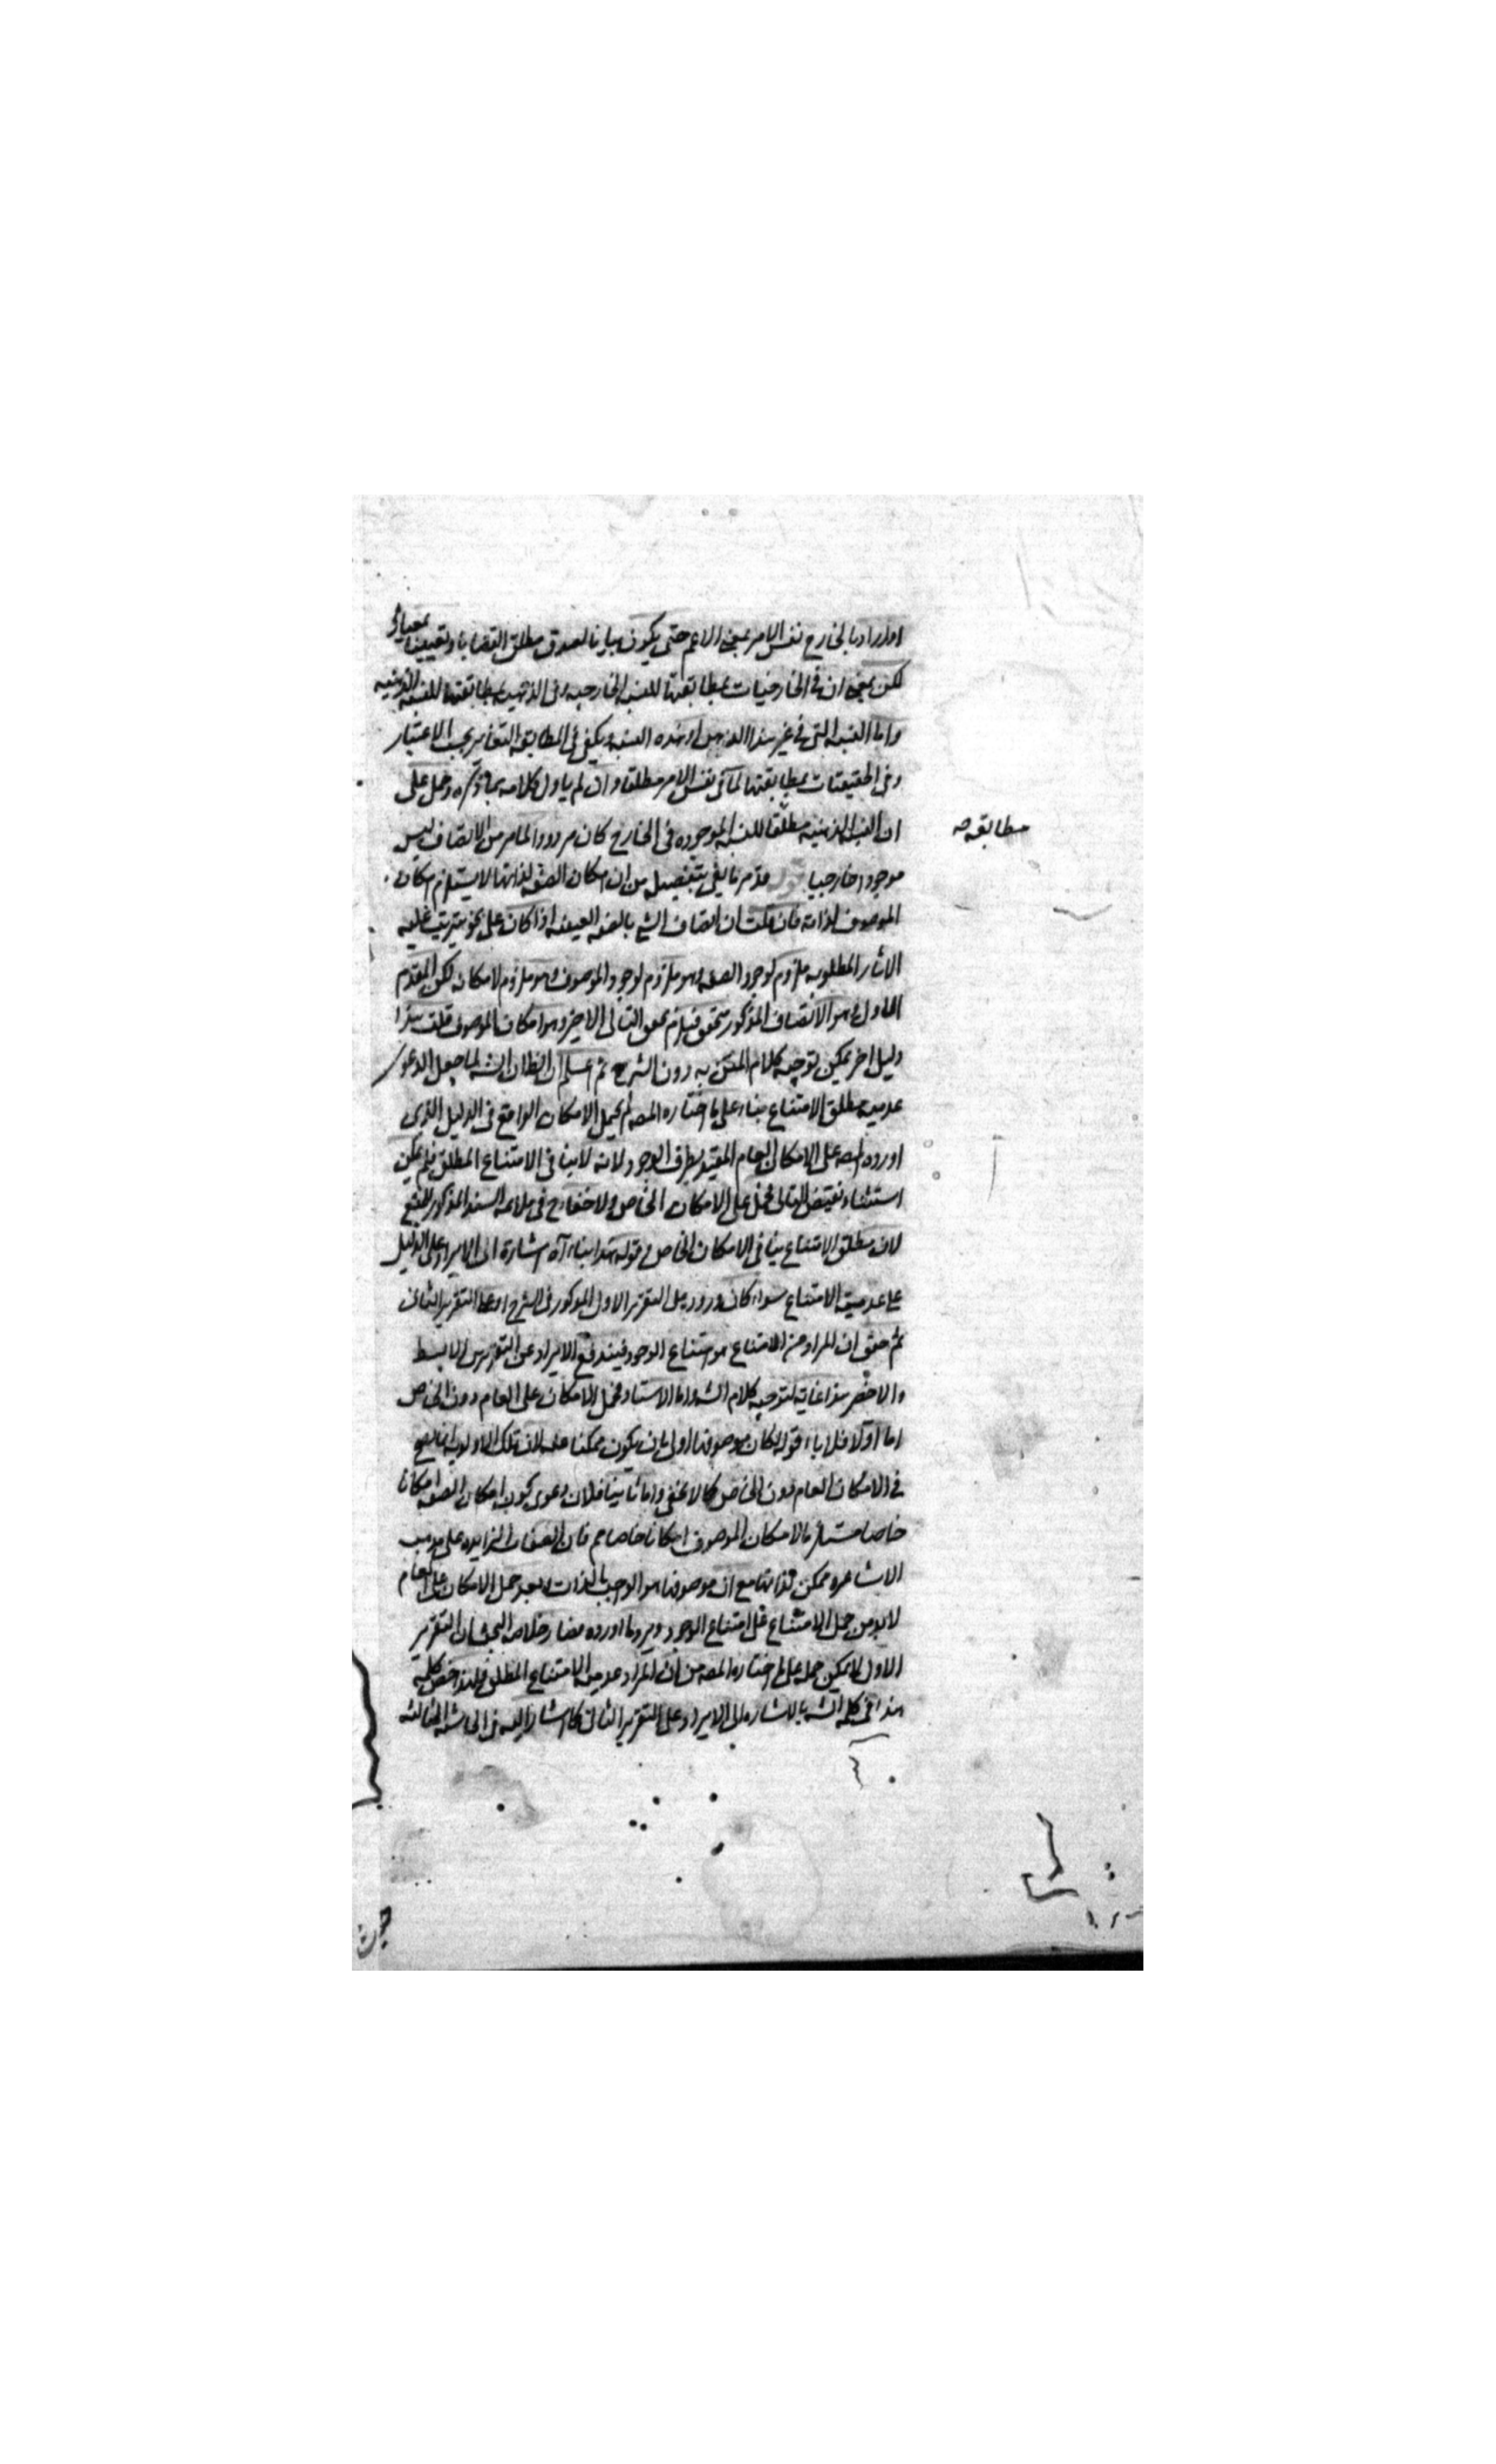 او اراد بالخارج نفس الامر بمعنى الاعم حتى يكون بيانا لصدق مطلق القضايا وتعيينا بمعيار
لكن بمعنى ان في الخارجيات بمطابقتها للنسبة الخارجيه وفي الذهنيه بمطابقتها للنسبة الذهنيه
واما النسبة التي في غير هذا الذهن او هذه النسبة ويكفي في المطابقة التغاير بحسب الاعتبار
وفي الحقيقيات بمطابقتها لما في نفس الامر مطلقا وان لم ياول كلامه بما ذكره وحمل على
ان النسبة الذهنيه مطلقا للنسبة الموجوده في الخارج كان مردودا لما مر من ان الاتصاف ليس
مطابقه صح
موجودا خارجيا قوله قد مر ما يفي بتفصيله من ان امكان الصفة لذاتها لا يستلزم امكان
الموصوف لذاته فان قلت ان اتصاف الشي بالصفه العينيه اذا كان على نحو يترتب عليه
الاثار المطلوبه ملزوم لوجود الصفه وهو ملزوم لوجود الموصوف وهو ملزوم لامكانه لكن المقدم
الاول وهو الاتصاف المذكور تحقق فيلزم تحقق التالي الاخير وهو امكان الموصوف قلت هذا
دليل اخر يمكن توجيه كلام المتن به دون الشرح ثم اعلم ان الظاهر ان الشه لما جعل الدعوى
عدمية مطلق الامتناع بناء على ما اختاره المصه لم يحمل الامكان الواقع في الدليل الذي
اورده المصه على الامكان العام المقيد بطرف الوجود لانه لا ينافي الامتناع المطلق فلم يمكن
استثناء نقيض التالي فحمل على الامكان الخاص ولا خفاء ح في ملائمة السند المذكور للمنع
لان مطلق الامتناع ينافي الامكان الخاص وقوله هذا بناء آه اشارة الى الايراد على الدليل
على عدمية الامتناع سواء كان وروده على التقرير الاول المذكور في الشرح او على التقرير الثاني
ثم حقق ان المراد من الامتناع هو امتناع الوجود فيندفع الايراد عن التقريرين الابسط
والاخصر هذا غاية لتوجيه كلام الشه واما الاستاد فحمل الامكان على العام دون الخاص
اما اولا فلاباء قوله لكان موصوفها اولى بان يكون ممكنا عنه لان تلك الاولويه انما يصح
في الامكان العام دون الخاص كما لا يخفى واما ثانيا فلان دعوى كون امكان الصفه امكانا
خاصا مستلزما لامكان الموصوف امكانا خاصا مم فان الصفات الزايده على مذهب
الاشاعره ممكن لذاتها مع ان موصوفها هو الواجب بالذات وبعد حمل الامكان على العام
لابد من حمل الامتناع على امتناع الوجود ويرد ما اورده فصار خلاصه البحث ان التقرير
الاول لا يمكن حمله على ما اختاره المصه من ان المراد عدمية الامتناع المطلق فلهذا خص كلمه
هذا في كلام الشه بالاشاره الى الايراد على التقرير الثاني كما اشار اليه في الحاشيه الثالثه